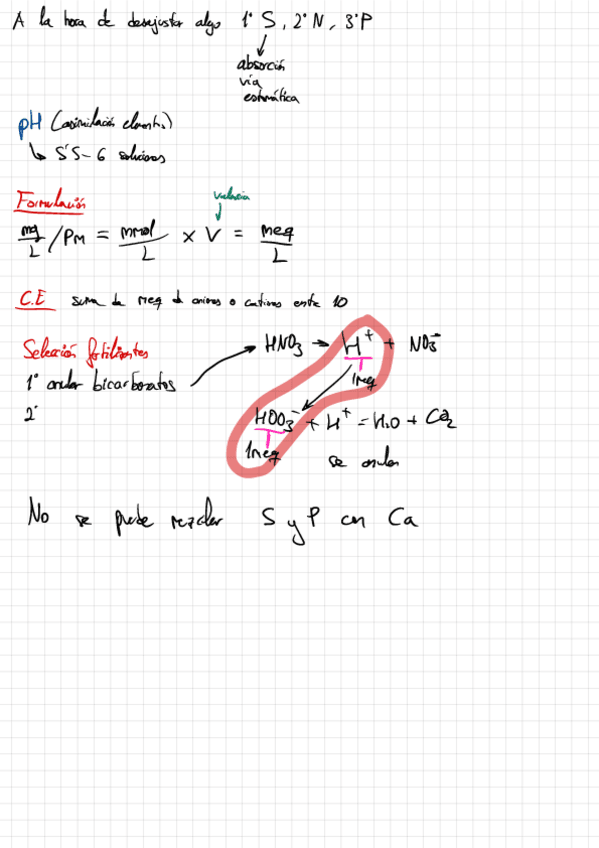 A la hora de desajustar algo 1º S, 2º N, 3º P
absorción
vía
estomática
pH (asimilación elementos)
↳ 5'5-6 soluciones
Formulación
valencia
mg/L / PM = mmol/L x V = meq/L
C.E suma de meq de aniones o cationes entre 10
Selección fertilizantes
HNO3 → H+ + NO3-
1º anular bicarbonatos
1meq
2º
HOO3- + H+ = H2O + CO2
1meq
se anulan
No se puede mezclar S y P con Ca